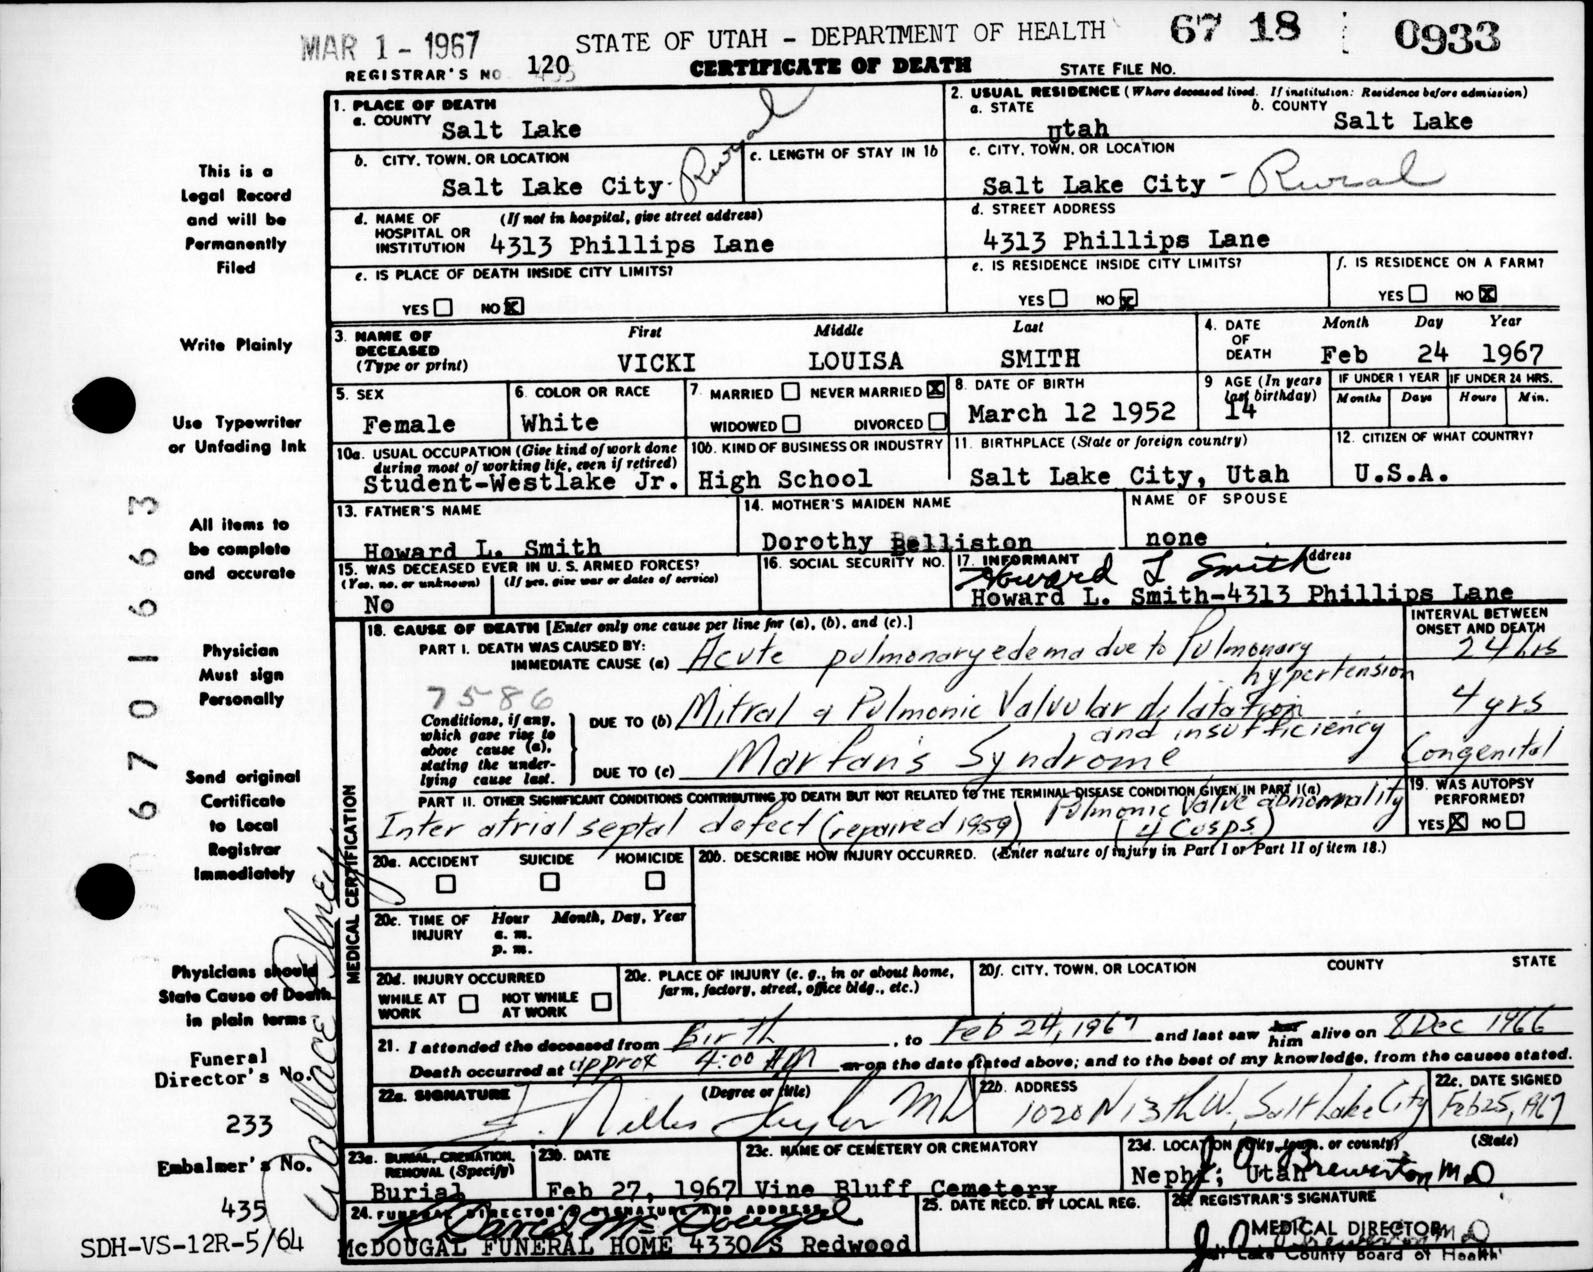 MAR 1 - 1967
STATE OF UTAH - DEPARTMENT OF HEALTH
67 18 0933
REGISTRAR'S NO 120
CERTIFICATE OF DEATH
STATE FILE NO.
1. PLACE OF DEATH
a. COUNTY Salt Lake
2. USUAL RESIDENCE (Where deceased lived. If institution: Residence before admission)
a. STATE Utah
b. COUNTY Salt Lake
b. CITY, TOWN, OR LOCATION
Salt Lake City - Rural
c. LENGTH OF STAY IN 1b
c. CITY, TOWN, OR LOCATION
Salt Lake City - Rural
d. NAME OF HOSPITAL OR INSTITUTION (If not in hospital, give street address)
4313 Phillips Lane
d. STREET ADDRESS
4313 Phillips Lane
e. IS PLACE OF DEATH INSIDE CITY LIMITS?
YES NO X
e. IS RESIDENCE INSIDE CITY LIMITS?
YES NO X
f. IS RESIDENCE ON A FARM?
YES NO X
3. NAME OF DECEASED (Type or print)
First Middle Last
VICKI LOUISA SMITH
4. DATE OF DEATH
Month Day Year
Feb 24 1967
5. SEX
Female
6. COLOR OR RACE
White
7. MARRIED NEVER MARRIED X
WIDOWED DIVORCED
8. DATE OF BIRTH
March 12 1952
9 AGE (In years last birthday)
14
IF UNDER 1 YEAR
Months Days
IF UNDER 24 HRS.
Hours Min.
10a. USUAL OCCUPATION (Give kind of work done during most of working life, even if retired)
Student-Westlake Jr.
10b. KIND OF BUSINESS OR INDUSTRY
High School
11. BIRTHPLACE (State or foreign country)
Salt Lake City, Utah
12. CITIZEN OF WHAT COUNTRY?
U.S.A.
13. FATHER'S NAME
Howard L. Smith
14. MOTHER'S MAIDEN NAME
Dorothy Belliston
NAME OF SPOUSE
none
15. WAS DECEASED EVER IN U. S. ARMED FORCES?
(Yes, no, or unknown) (If yes, give war or dates of service)
No
16. SOCIAL SECURITY NO.
17. INFORMANT Address
Howard L Smith
Howard L. Smith-4313 Phillips Lane
MEDICAL CERTIFICATION
18. CAUSE OF DEATH [Enter only one cause per line for (a), (b), and (c).]
INTERVAL BETWEEN ONSET AND DEATH
PART I. DEATH WAS CAUSED BY:
IMMEDIATE CAUSE (a) Acute pulmonary edema due to Pulmonary hypertension
24 hrs
7586
Conditions, if any, which gave rise to above cause (a), stating the underlying cause last.
DUE TO (b) Mitral & Pulmonic Valvular dilatation and insufficiency
4 yrs
DUE TO (c) Marfan's Syndrome
Congenital
PART II. OTHER SIGNIFICANT CONDITIONS CONTRIBUTING TO DEATH BUT NOT RELATED TO THE TERMINAL DISEASE CONDITION GIVEN IN PART I(a)
Inter atrial septal defect (repaired 1959) Pulmonic Valve abnormality (4 Cusps)
19. WAS AUTOPSY PERFORMED?
YES X NO
20a. ACCIDENT SUICIDE HOMICIDE
20b. DESCRIBE HOW INJURY OCCURRED. (Enter nature of injury in Part I or Part II of item 18.)
20c. TIME OF INJURY
Hour Month, Day, Year
a. m.
p. m.
20d. INJURY OCCURRED
WHILE AT WORK NOT WHILE AT WORK
20e. PLACE OF INJURY (e. g., in or about home, farm, factory, street, office bldg., etc.)
20f. CITY, TOWN, OR LOCATION COUNTY STATE
21. I attended the deceased from Birth, to Feb 24, 1967 and last saw her him alive on 8 Dec 1966
Death occurred at approx 4:00 AM m on the date stated above; and to the best of my knowledge, from the causes stated.
22a. SIGNATURE (Degree or title)
Taylor MD
22b. ADDRESS
1020 N 13th W, Salt Lake City
22c. DATE SIGNED
Feb 25, 1967
23a. BURIAL, CREMATION, REMOVAL (Specify)
Burial
23b. DATE
Feb 27, 1967
23c. NAME OF CEMETERY OR CREMATORY
Vine Bluff Cemetery
23d. LOCATION (City, town, or county) (State)
Nephi; Utah
J O Brewerton M D
24. FUNERAL DIRECTOR'S SIGNATURE AND ADDRESS
David McDougal
McDOUGAL FUNERAL HOME 4330 S Redwood
25. DATE RECD. BY LOCAL REG.
26. REGISTRAR'S SIGNATURE
MEDICAL DIRECTOR
Salt Lake County Board of Health
This is a
Legal Record
and will be
Permanently
Filed
Write Plainly
Use Typewriter
or Unfading Ink
All items to
be complete
and accurate
Physician
Must sign
Personally
Send original
Certificate
to Local
Registrar
Immediately
Physicians should
State Cause of Death
in plain terms
Funeral
Director's No.
233
Embalmer's No.
435
SDH-VS-12R-5/64
67 01663
Wallace